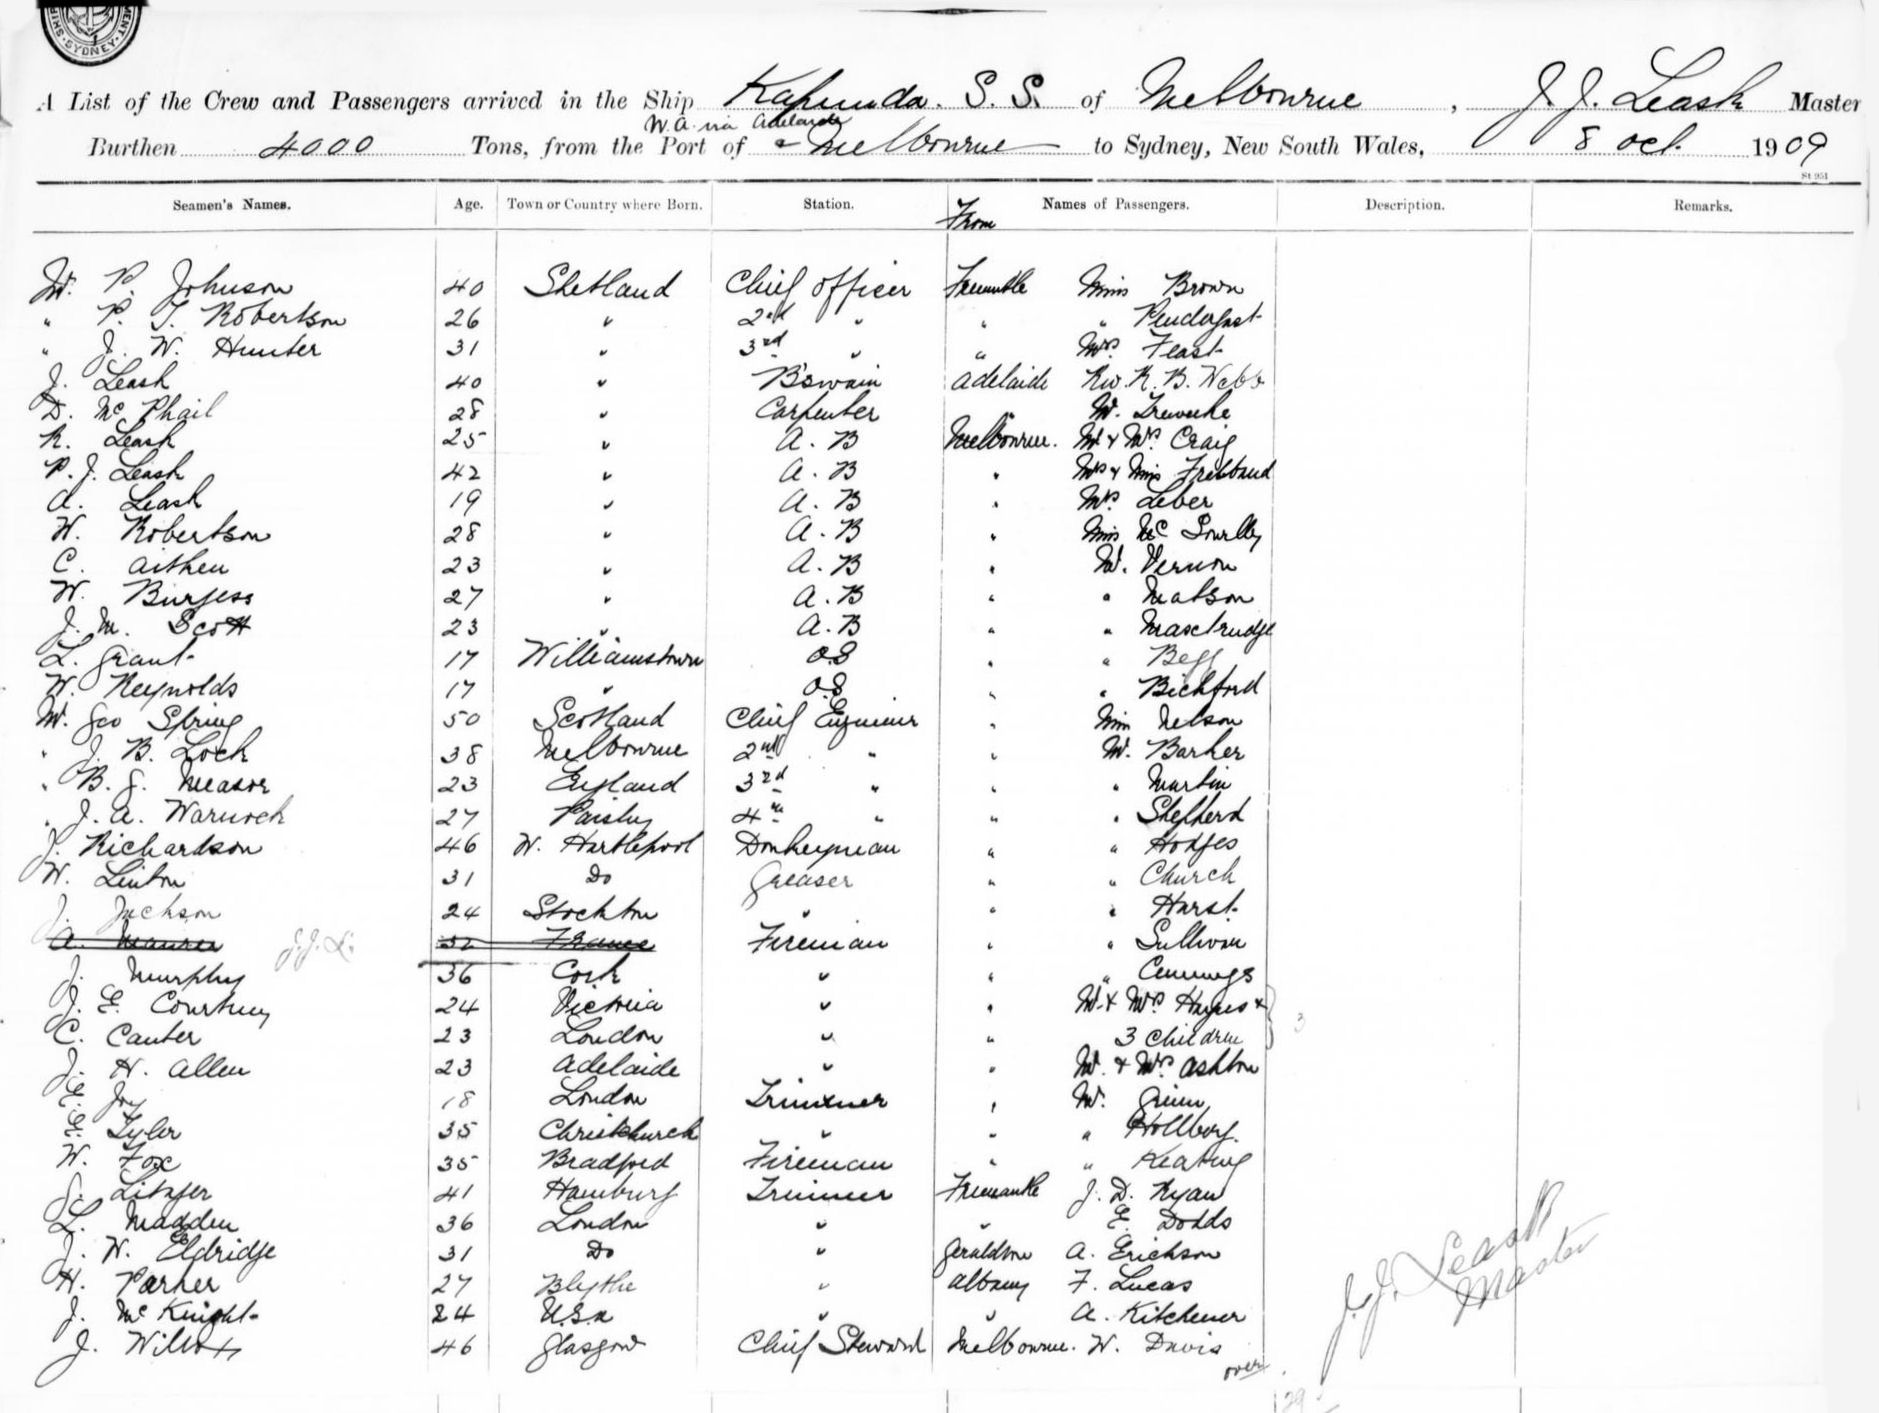 SYDNEY
A List of the Crew and Passengers arrived in the Ship Kapunda. S.S. of Melbourne, J. J. Leask Master
W.A. via Adelaide
Burthen 4000 Tons, from the Port of & Melbourne to Sydney, New South Wales, 8 Oct. 1909
St 951
Seamen's Names. Age. Town or Country where Born. Station. Names of Passengers. Description. Remarks.
From
Mr. P. Johnson 40 Shetland Chief Officer Fremantle Miss Brown
" P. T. Robertson 26 " 2nd " " " Pendergast
" J. W. Hunter 31 " 3rd " " Mrs Feast
J. Leask 40 " B'swain Adelaide Rev. R. B. Webb
D. McPhail 28 " Carpenter " Mr.
R. Leask 25 " A.B Melbourne. Mr & Mrs Craig
P. J. Leask 42 " A.B " Mrs & Miss
A. Leask 19 " A.B " Mrs Leber
W. Robertson 28 " A.B " Miss Mc
C. Aitken 23 " A.B " Mr. Vernon
W. Burgess 27 " A.B " " Matson
J. M. Scott 23 " A.B " "
L. Grant 17 Williamstown O.S " " Begg
W. Reynolds 17 " O.S " " Bickford
Mr. Geo Spring 50 Scotland Chief Engineer " Miss Nelson
" J. B. Lock 38 Melbourne 2nd " " Mr. Barker
" B. J. Measor 23 England 3rd " " " Martin
" J. A. Warnock 27 Paisley 4th " " " Shepherd
J. Richardson 46 W. Hartlepool Donkeyman " " Hodges
W. Linton 31 Do Greaser " " Church
J. Jackson 24 Stockton " " " Hurst
A. Maurer J.J.L. 32 France Fireman " " Sullivan
J. Murphy 36 Cork " " " Cummings
J. E. Courtney 24 Victoria " " Mr & Mrs Haynes &
C. Canter 23 London " " 3 Children } 3
J. H. Allen 23 Adelaide " " Mr. & Mrs Ashton
E. Joy 18 London Trimmer " Mr. Quinn
E. Tyler 35 Christchurch " " " Hollborg.
W. Fox 35 Bradford Fireman " " Keating
41 Hamburg Trimmer Fremantle J. D. Ryan
L. Madden 36 London " " E. Dodds
J. W. Eldridge 31 Do " Geraldton A. Erickson
H. Parker 27 Blythe " Albany F. Lucas
J. McKnight 24 U.S.A " " A. Kitchener
J. Wilcox 46 Glasgow Chief Steward Melbourne. W. Davis
over
J. J. Leask
Master
29